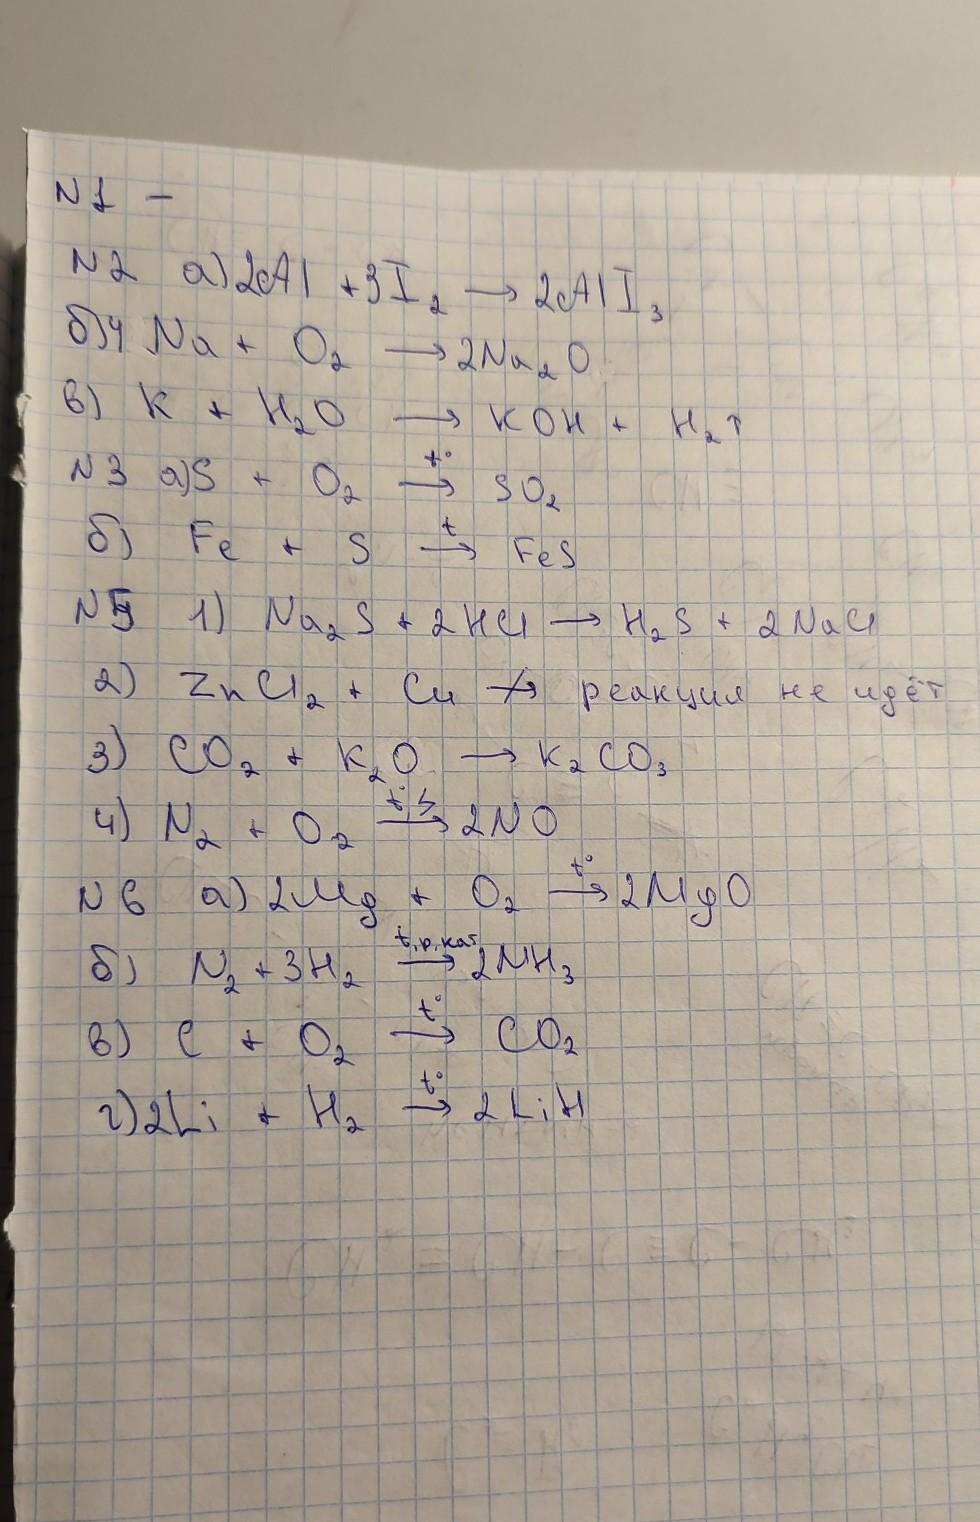 N1 –
N2 а) 2Al + 3I₂ → 2AlI₃
б) 4Na + O₂ → 2Na₂O
в) K + H₂O → KOH + H₂↑
N3 а) S + O₂ t°→ SO₂
б) Fe + S t→ FeS
N5 1) Na₂S + 2HCl → H₂S + 2NaCl
2) ZnCl₂ + Cu ↛ реакция не идёт
3) CO₂ + K₂O → K₂CO₃
4) N₂ + O₂ → 2NO
N6 а) 2Mg + O₂ t°→ 2MgO
б) N₂ + 3H₂ t,p,кат→ 2NH₃
в) C + O₂ t°→ CO₂
г) 2Li + H₂ t°→ 2LiH